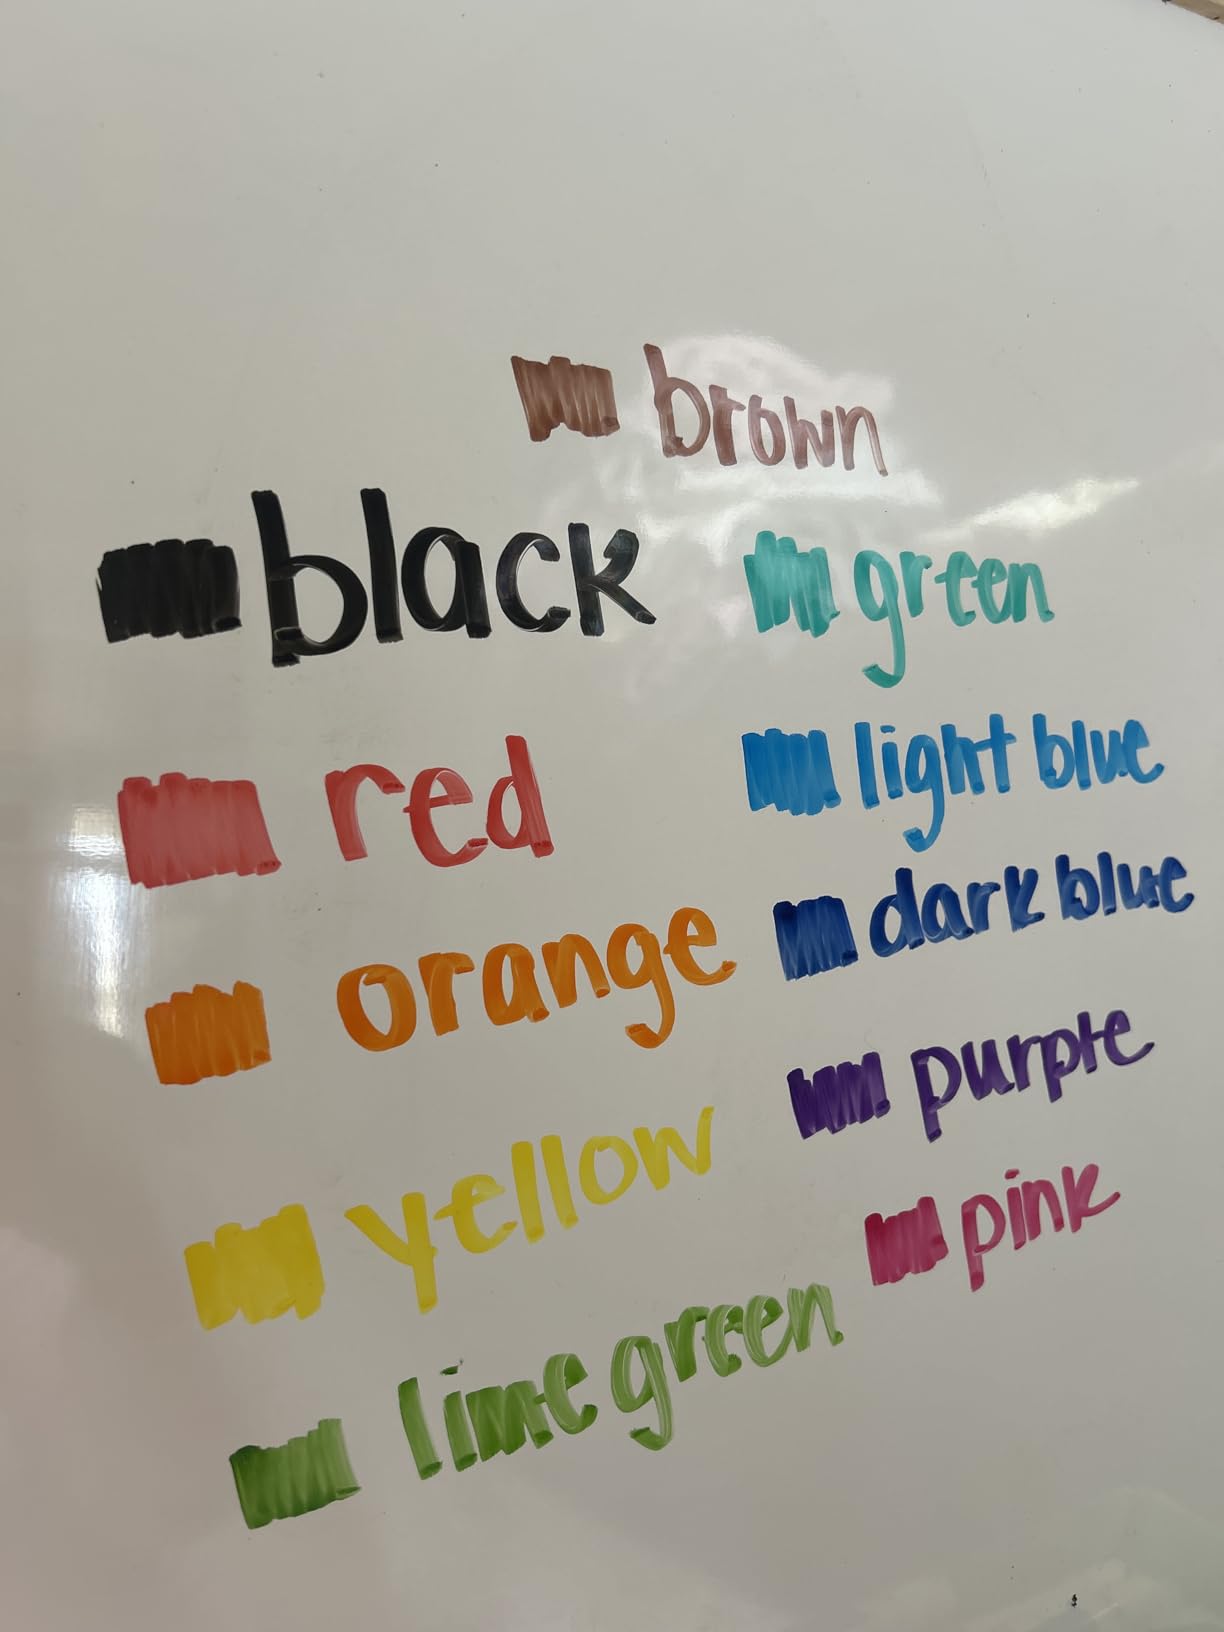 brown
black
green
red
light blue
dark blue
orange
purple
yellow
pink
lime green